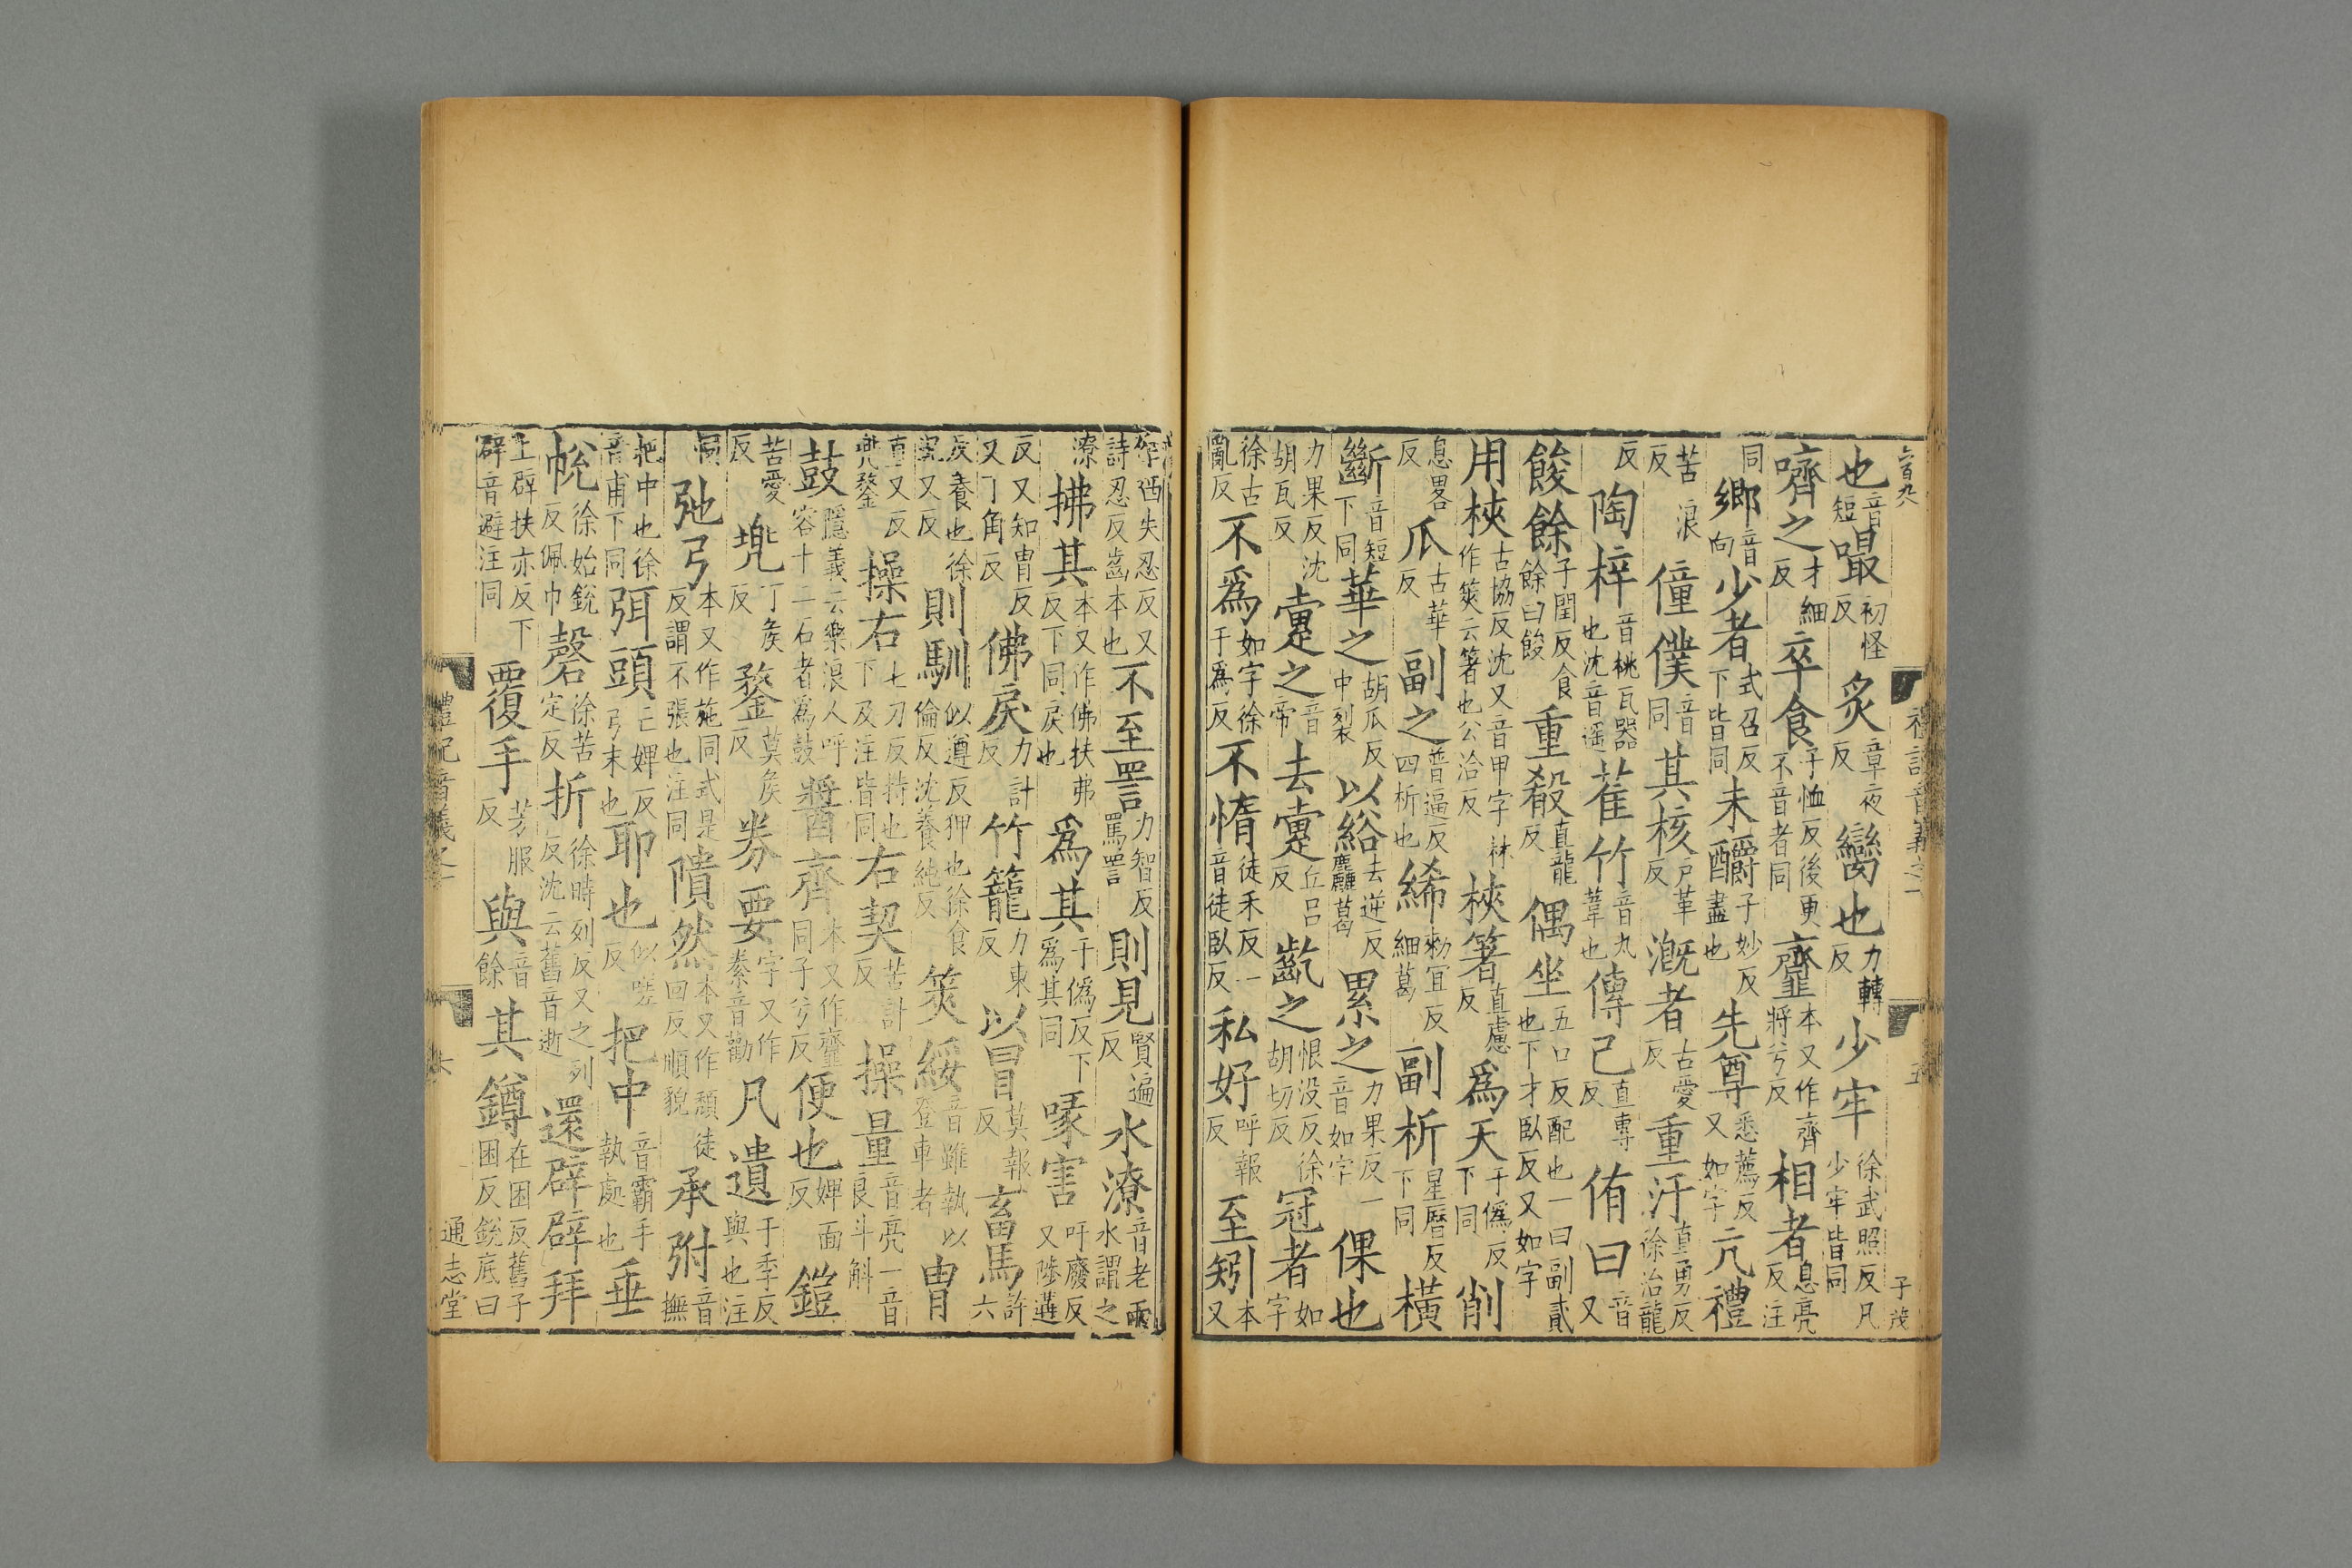 也音短嘬初怪反炙章夜反臠也力轉反少牢徐武照反凡少牢皆同
嚌之才細反卒食子恤反後更不音者同齏本又作齊將兮反相者息亮反注
同鄉音向少者式召反下皆同未釂子妙反盡也先尊悉薦反又如字亢禮
苦浪反僮僕音同其核戶革反溉者古愛反重汙直勇反徐治龍
反陶梓音桃瓦器也沈音遥萑竹音丸葦也傳己直專反侑曰音又
餕餘子閏反食餘曰餕重殽直龍反偶坐五口反配也一曰副貳也下才臥反又如字
用梜古協反沈又音甲字林作筴云箸也公洽反梜箸直慮反為天于僞反下同削
息畧反瓜古華反副之普逼反四析也絺勑宜反細葛副析星曆反下同橫
斷音短下同華之胡瓜反中裂以綌去逆反麤葛累之力果反一音如字倮也
力果反沈胡瓦反疐之音帝去疐丘呂反齕之恨没反徐胡切反冠者如字
徐古亂反不為如字徐于為反不惰徒禾反一音徒臥反私好呼報反至矧本又
作哂失忍反又詩忍反齒本也不至詈力智反罵詈則見賢遍反水潦音老雨水謂之
潦拂其本又作佛扶弗反下同戾也為其于僞反下為其同喙害吁廢反又陟遘
反又知胄反又丁角反佛戾力計反竹籠力東反以冒莫報反畜馬許六
反養也徐況又反則馴似遵反狎也徐食倫反沈養純反筴綏音雖執以登車者胄
直又反兜鍪操右七刀反持也下及注皆同右契苦計反操量音亮一音良斗斛
鼓隱義云樂浪人呼容十二石者為鼓醬齊本又作齏同子兮反便也婢面反鎧
苦愛反兜丁矦反鍪莫矦反券要字又作絭音勸凡遺于季反與也注
同弛弓本又作施同式是反謂不張也注同隤然本又作頹徒回反順貌承弣音撫
把中也徐音甫下同弭頭亡婢反弓末也耶也似嗟反把中音霸手執處也垂
帨徐始銳反佩巾磬徐苦定反折徐時列反又之列反沈云舊音逝還辟辟拜
上辟扶亦反下辟音避注同覆手芳服反與音餘其鐏在困反舊子困反銳底曰
禮記音義之一
五
禮記音義之一
六
通志堂
子茂